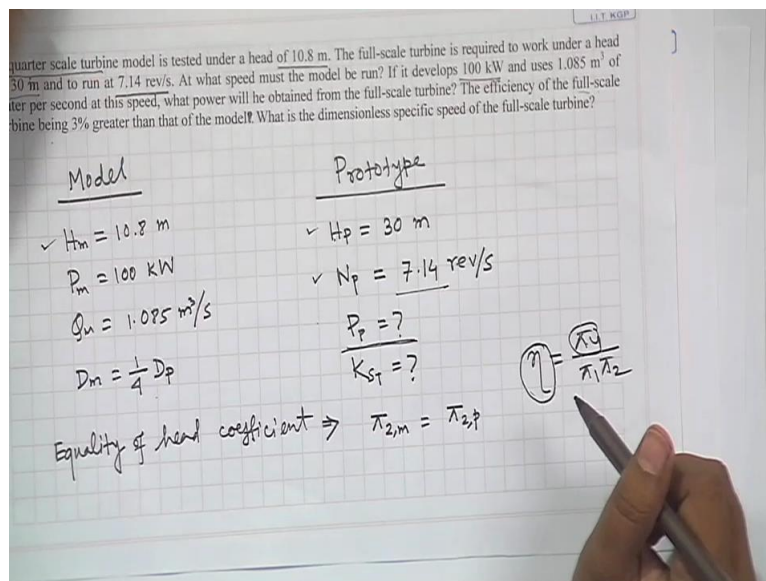 I.I.T KGP
quarter scale turbine model is tested under a head of 10.8 m. The full-scale turbine is required to work under a head
30 m and to run at 7.14 rev/s. At what speed must the model be run? If it develops 100 kW and uses 1.085 m³ of
ter per second at this speed, what power will he obtained from the full-scale turbine? The efficiency of the full-scale
bine being 3% greater than that of the model? What is the dimensionless specific speed of the full-scale turbine?
Model Prototype
✓ Hm = 10.8 m ✓ Hp = 30 m
Pm = 100 KW ✓ Np = 7.14 rev/s
Qm = 1.085 m³/s Pp = ?
Dm = 1/4 Dp KST = ? η = π4/π1π2
Equality of head coefficient ⇒ π2,m = π2,p